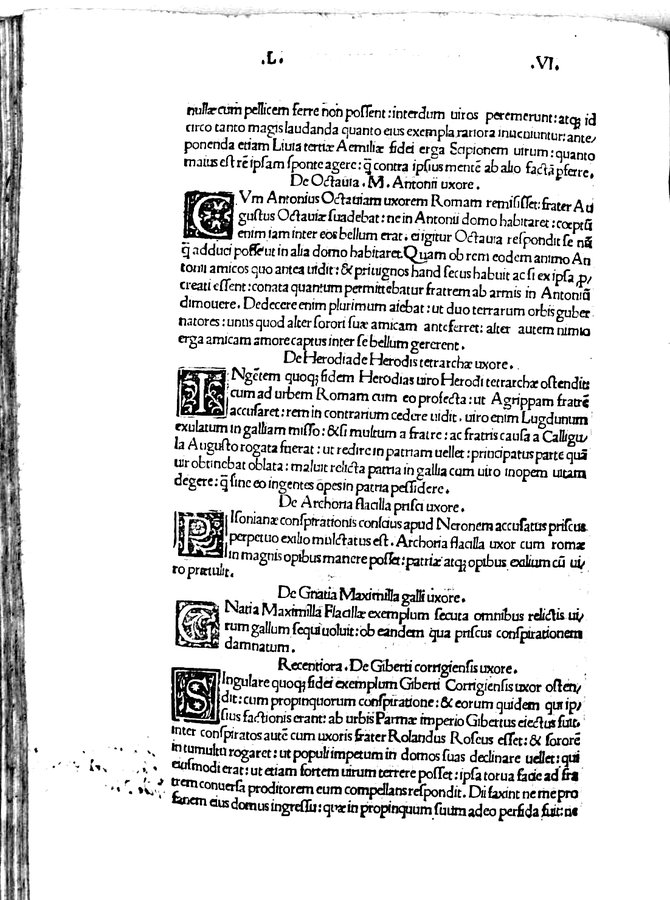 .L. .VI.
nullæ cum pellicem ferre non possent: interdum uiros peremerunt: atq; id
circo tanto magis laudanda quanto eius exempla rariora inueniuntur: ante/
ponenda etiam Liuia tertiæ Aemiliæ fidei erga Scipionem uirum: quanto
maius est rē ipsam sponte agere: q̄ contra ipsius mentē ab alio factā pferre.
De Octauia. M. Antonii uxore.
CVm Antonius Octauiam uxorem Romam remisisset: frater Au
gustus Octauiæ suadebat: ne in Antonii domo habitaret: cœptū
enim iam inter eos bellum erat. ei igitur Octauia respondit se nā
q̄ adduci posse ut in alia domo habitaret. Quam ob rem eodem animo An
tonii amicos quo antea uidit: & priuignos haud secus habuit ac si ex ipsa p/
creati essent: conata quantum permittebatur fratrem ab armis in Antoniū
dimouere. Dedecere enim plurimum aiebat: ut duo terrarum orbis guber
natores: unus quod alter sorori suæ amicam anteferret: alter autem nimio
erga amicam amore captus inter se bellum gererent.
De Herodiade Herodis tetrarchæ uxore.
INgētem quoq; fidem Herodias uiro Herodi tetrarchæ ostendit:
cum ad urbem Romam cum eo profecta: ut Agrippam fratrē
accusaret: rem in contrarium cedere uidit. uiro enim Lugdunum
exulatum in galliam misso: & si multum a fratre: ac fratris causa a Calligu/
la Augusto rogata fuerat: ut redire in patriam uellet: principatus parte quā
uir obtinebat oblata: maluit relicta patria in gallia cum uiro inopem uitam
degere: q̄ sine eo ingentes opes in patria possidere.
De Archoria flacilla prisci uxore.
PIsonianæ conspirationis conscius apud Neronem accusatus priscus
perpetuo exilio mulctatus est. Archoria flacilla uxor cum romæ
in magnis opibus manere posset: patriæ atq; opibus exilium cū ui/
ro prætulit.
De Gnatia Maximilla galli uxore.
GNatia Maximilla Flacillæ exemplum secuta omnibus relictis ui/
rum gallum sequi uoluit: ob eandem qua priscus conspirationem
damnatum.
Recentiora. De Giberti corrigiensis uxore.
SIngulare quoq; fidei exemplum Giberti Corrigiensis uxor osten/
dit: cum propinquorum conspiratione: & eorum quidem qui ip/
sius factionis erant: ab urbis Parmæ imperio Gibertus eiectus fuit.
inter conspiratos autē cum uxoris frater Rolandus Roseus esset: & sororē
in tumultu rogaret: ut populi impetum in domos suas declinare uellet: qui
eiusmodi erat: ut etiam fortem uirum terrere posset: ipsa torua facie ad fra
trem conuersa proditorem eum compellans respondit. Dii faxint ne me pro
fanem eius domus ingressu: quæ in propinquum suum adeo perfida fuit: ne